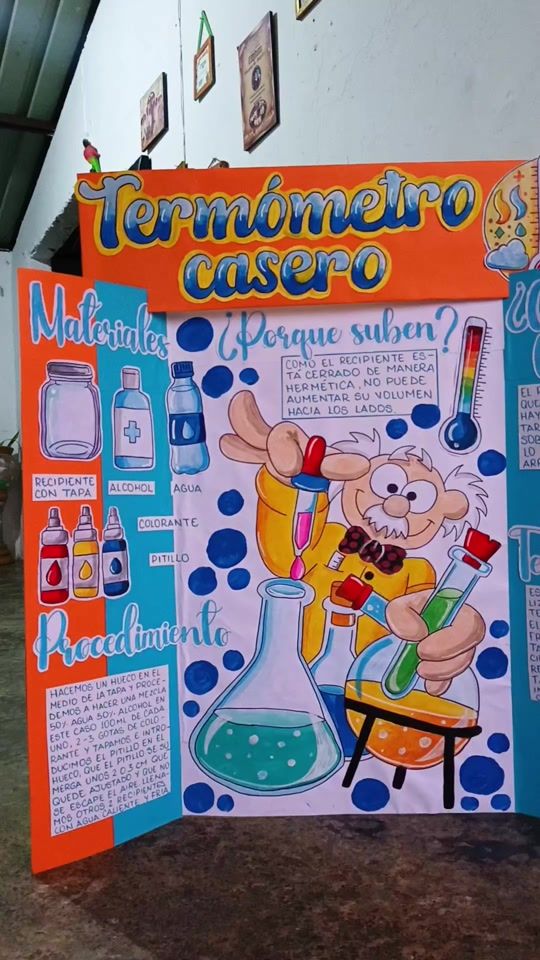 Termómetro
casero
Materiales
RECIPIENTE
CON TAPA
ALCOHOL
AGUA
COLORANTE
PITILLO
Procedimiento
HACEMOS UN HUECO EN EL
MEDIO DE LA TAPA Y PROCE-
DEMOS A HACER UNA MEZCLA
50% AGUA 50% ALCOHOL EN
ESTE CASO 100ML DE CADA
UNO, 2-3 GOTAS DE COLO-
RANTE Y TAPAMOS E INTRO-
DUCIMOS EL PITILLO EN EL
HUECO, QUE EL PITILLO SE SU
MERGA UNOS 2 O 3 CM QUE
QUEDE AJUSTADO Y QUE NO
SE ESCAPE EL AIRE LLENA-
MOS OTROS 2 RECIPIENTES
CON AGUA CALIENTE Y FRIA
¿Porque suben?
COMO EL RECIPIENTE ES-
TÁ CERRADO DE MANERA
HERMÉTICA, NO PUEDE
AUMENTAR SU VOLUMEN
HACIA LOS LADOS.